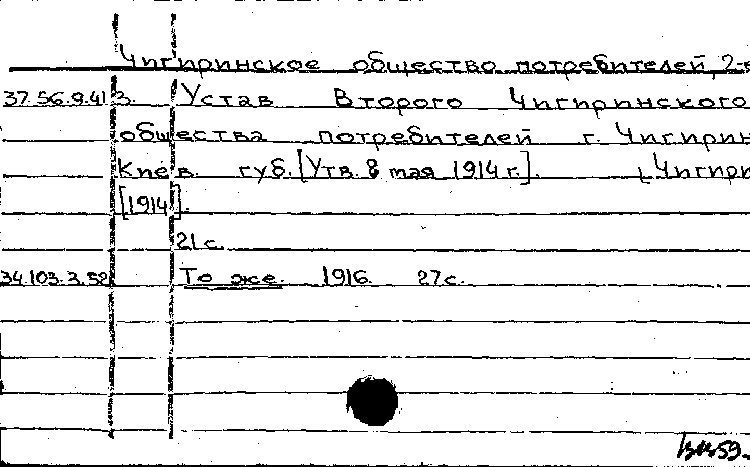 Чигиринское общество потребителей, 2-
37.56.9.413. Устав Второго Чигиринского
общества потребителей г. Чигирин
Киев. губ. [Утв. 8 мая 1914 г.]. [Чигири
[1914].
21 с.
34.103.3.52 То же. 1916. 27 с.